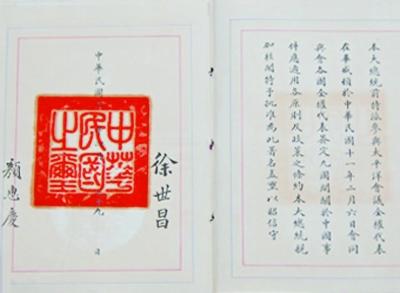 本大總統前特派參與太平洋會議全權代表
在華盛頓於中華民國十一年二月六日會同
與會各國全權代表簽定九國間關於中國事
件應適用各原則及政策之條約本大總統親
加核閱特予批准爲此署名蓋璽以昭信守
中華民國
九
日
中華民國之璽
徐世昌
顏惠慶